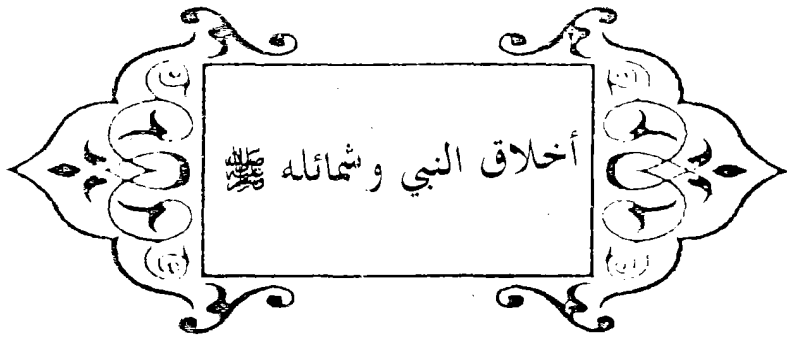 أخلاق النبي وشمائله ﷺ